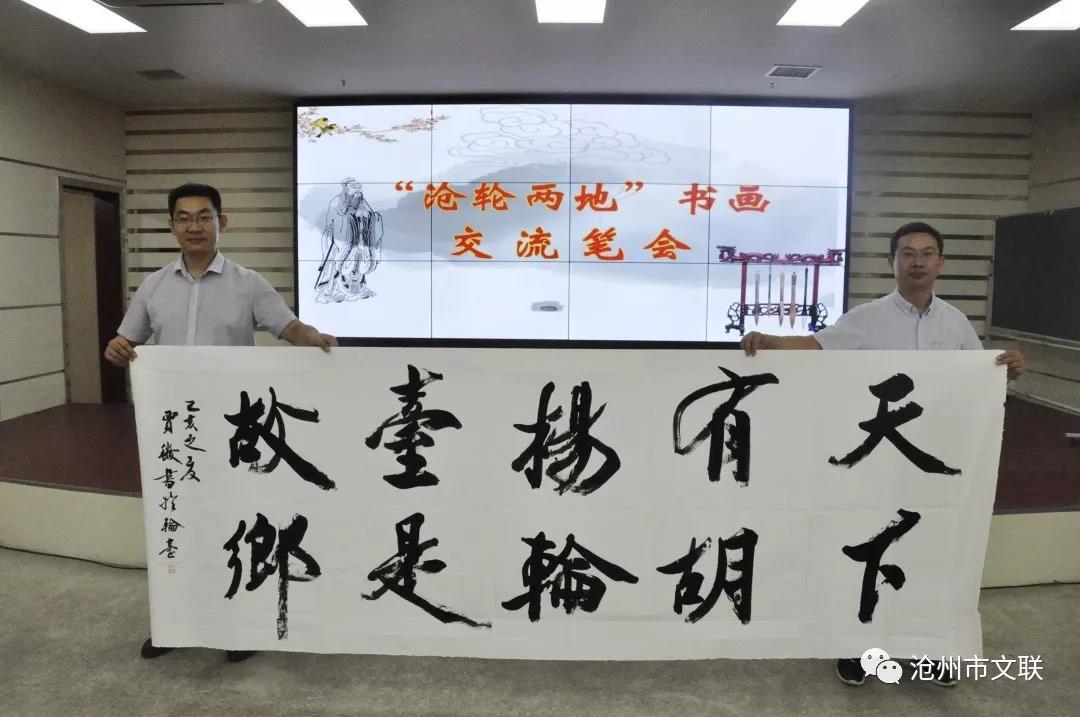 “沧轮两地”书画
交流笔会
天下
有胡
楊輪
臺是
故鄉
己亥之夏
賈 書於輪臺
沧州市文联